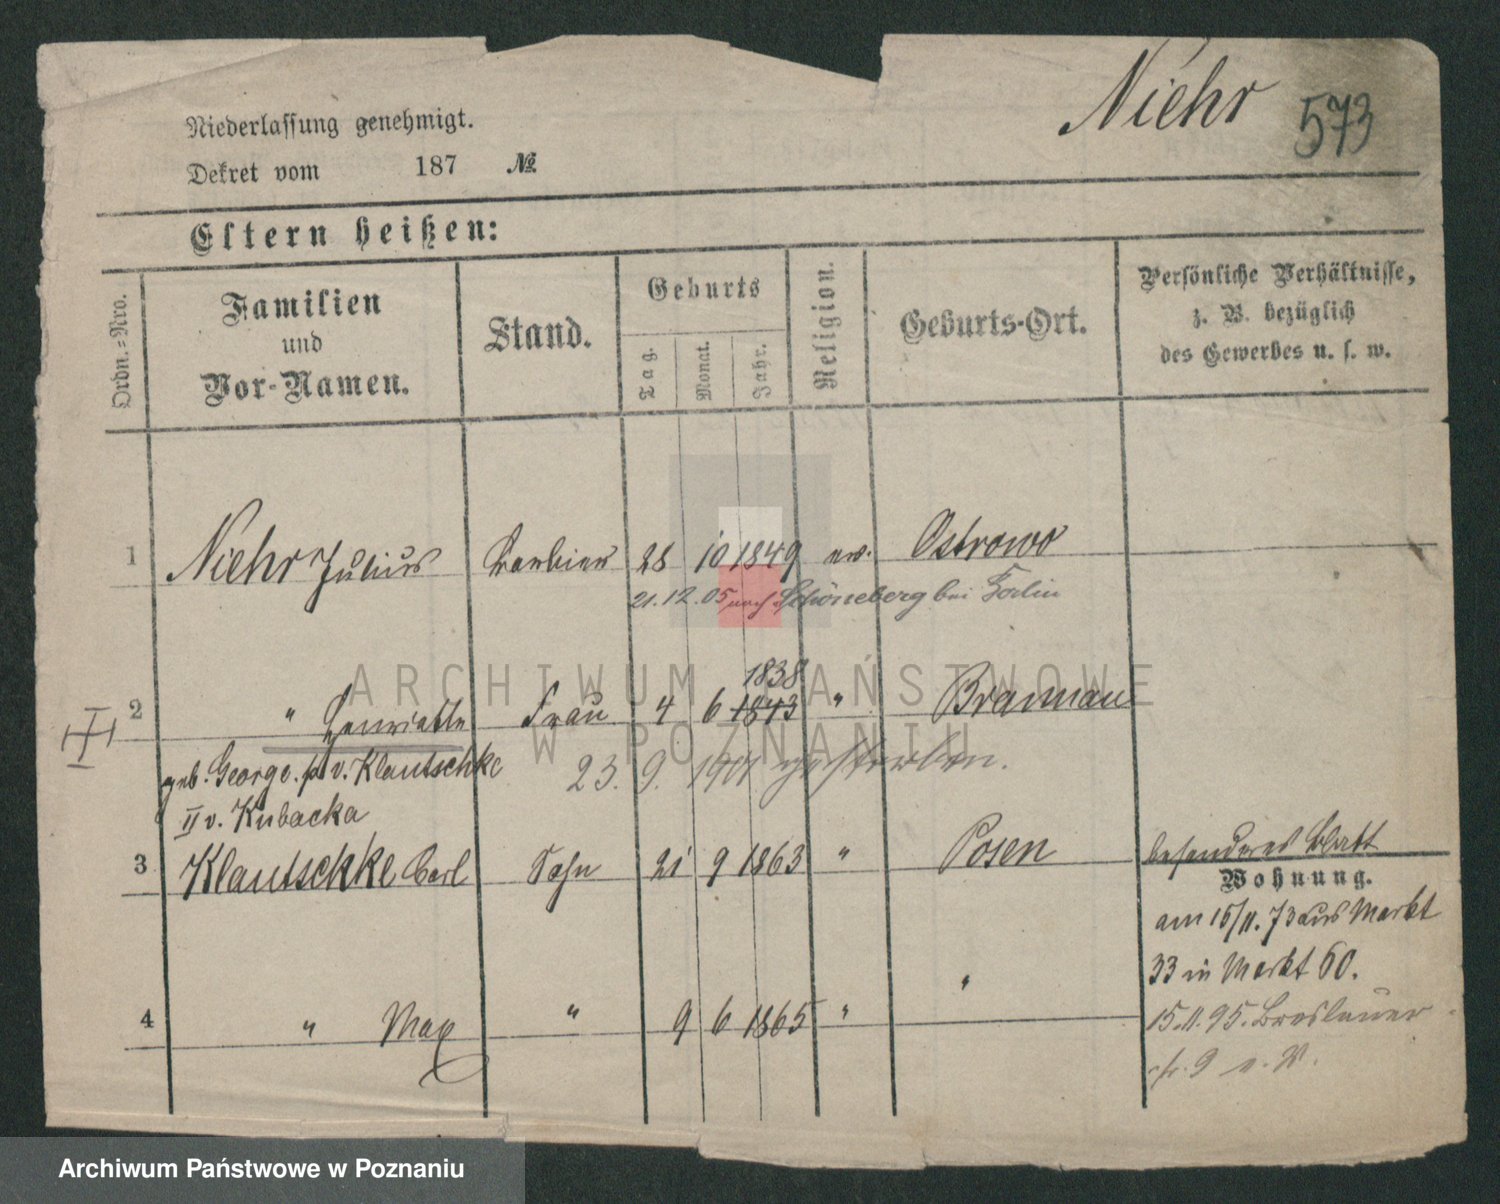 Niehr 573
Niederlassung genehmigt.
Dekret vom 187 №
Eltern heißen:
Ordn.-Nro.
Familien
und
Vor-Namen.
Stand.
Geburts
Tag.
Monat.
Jahr.
Religion.
Geburts-Ort.
Persönliche Verhältnisse,
z. B. bezüglich
des Gewerbes u. s. w.
1 Niehr Julius Barbier 28 10 1849 ev. Ostrowo
21.12.05 nach Schöneberg bei Berlin
1838
2 " Henriette Frau 4 6 1843 "
geb. George. v. Klautschke
23. 9. 1901 gestorben.
II v. Kubacka
3 Klautschke Carl Sohn 21 9 1863 " Posen besonderes Blatt
Wohnung.
am 15/11. 73 aus Markt
33 in Markt 60.
4 " Max " 9 6 1865 " "
15.11.95. Breslauer
str. 9
ARCHIWUM PAŃSTWOWE
W POZNANIU
Archiwum Państwowe w Poznaniu